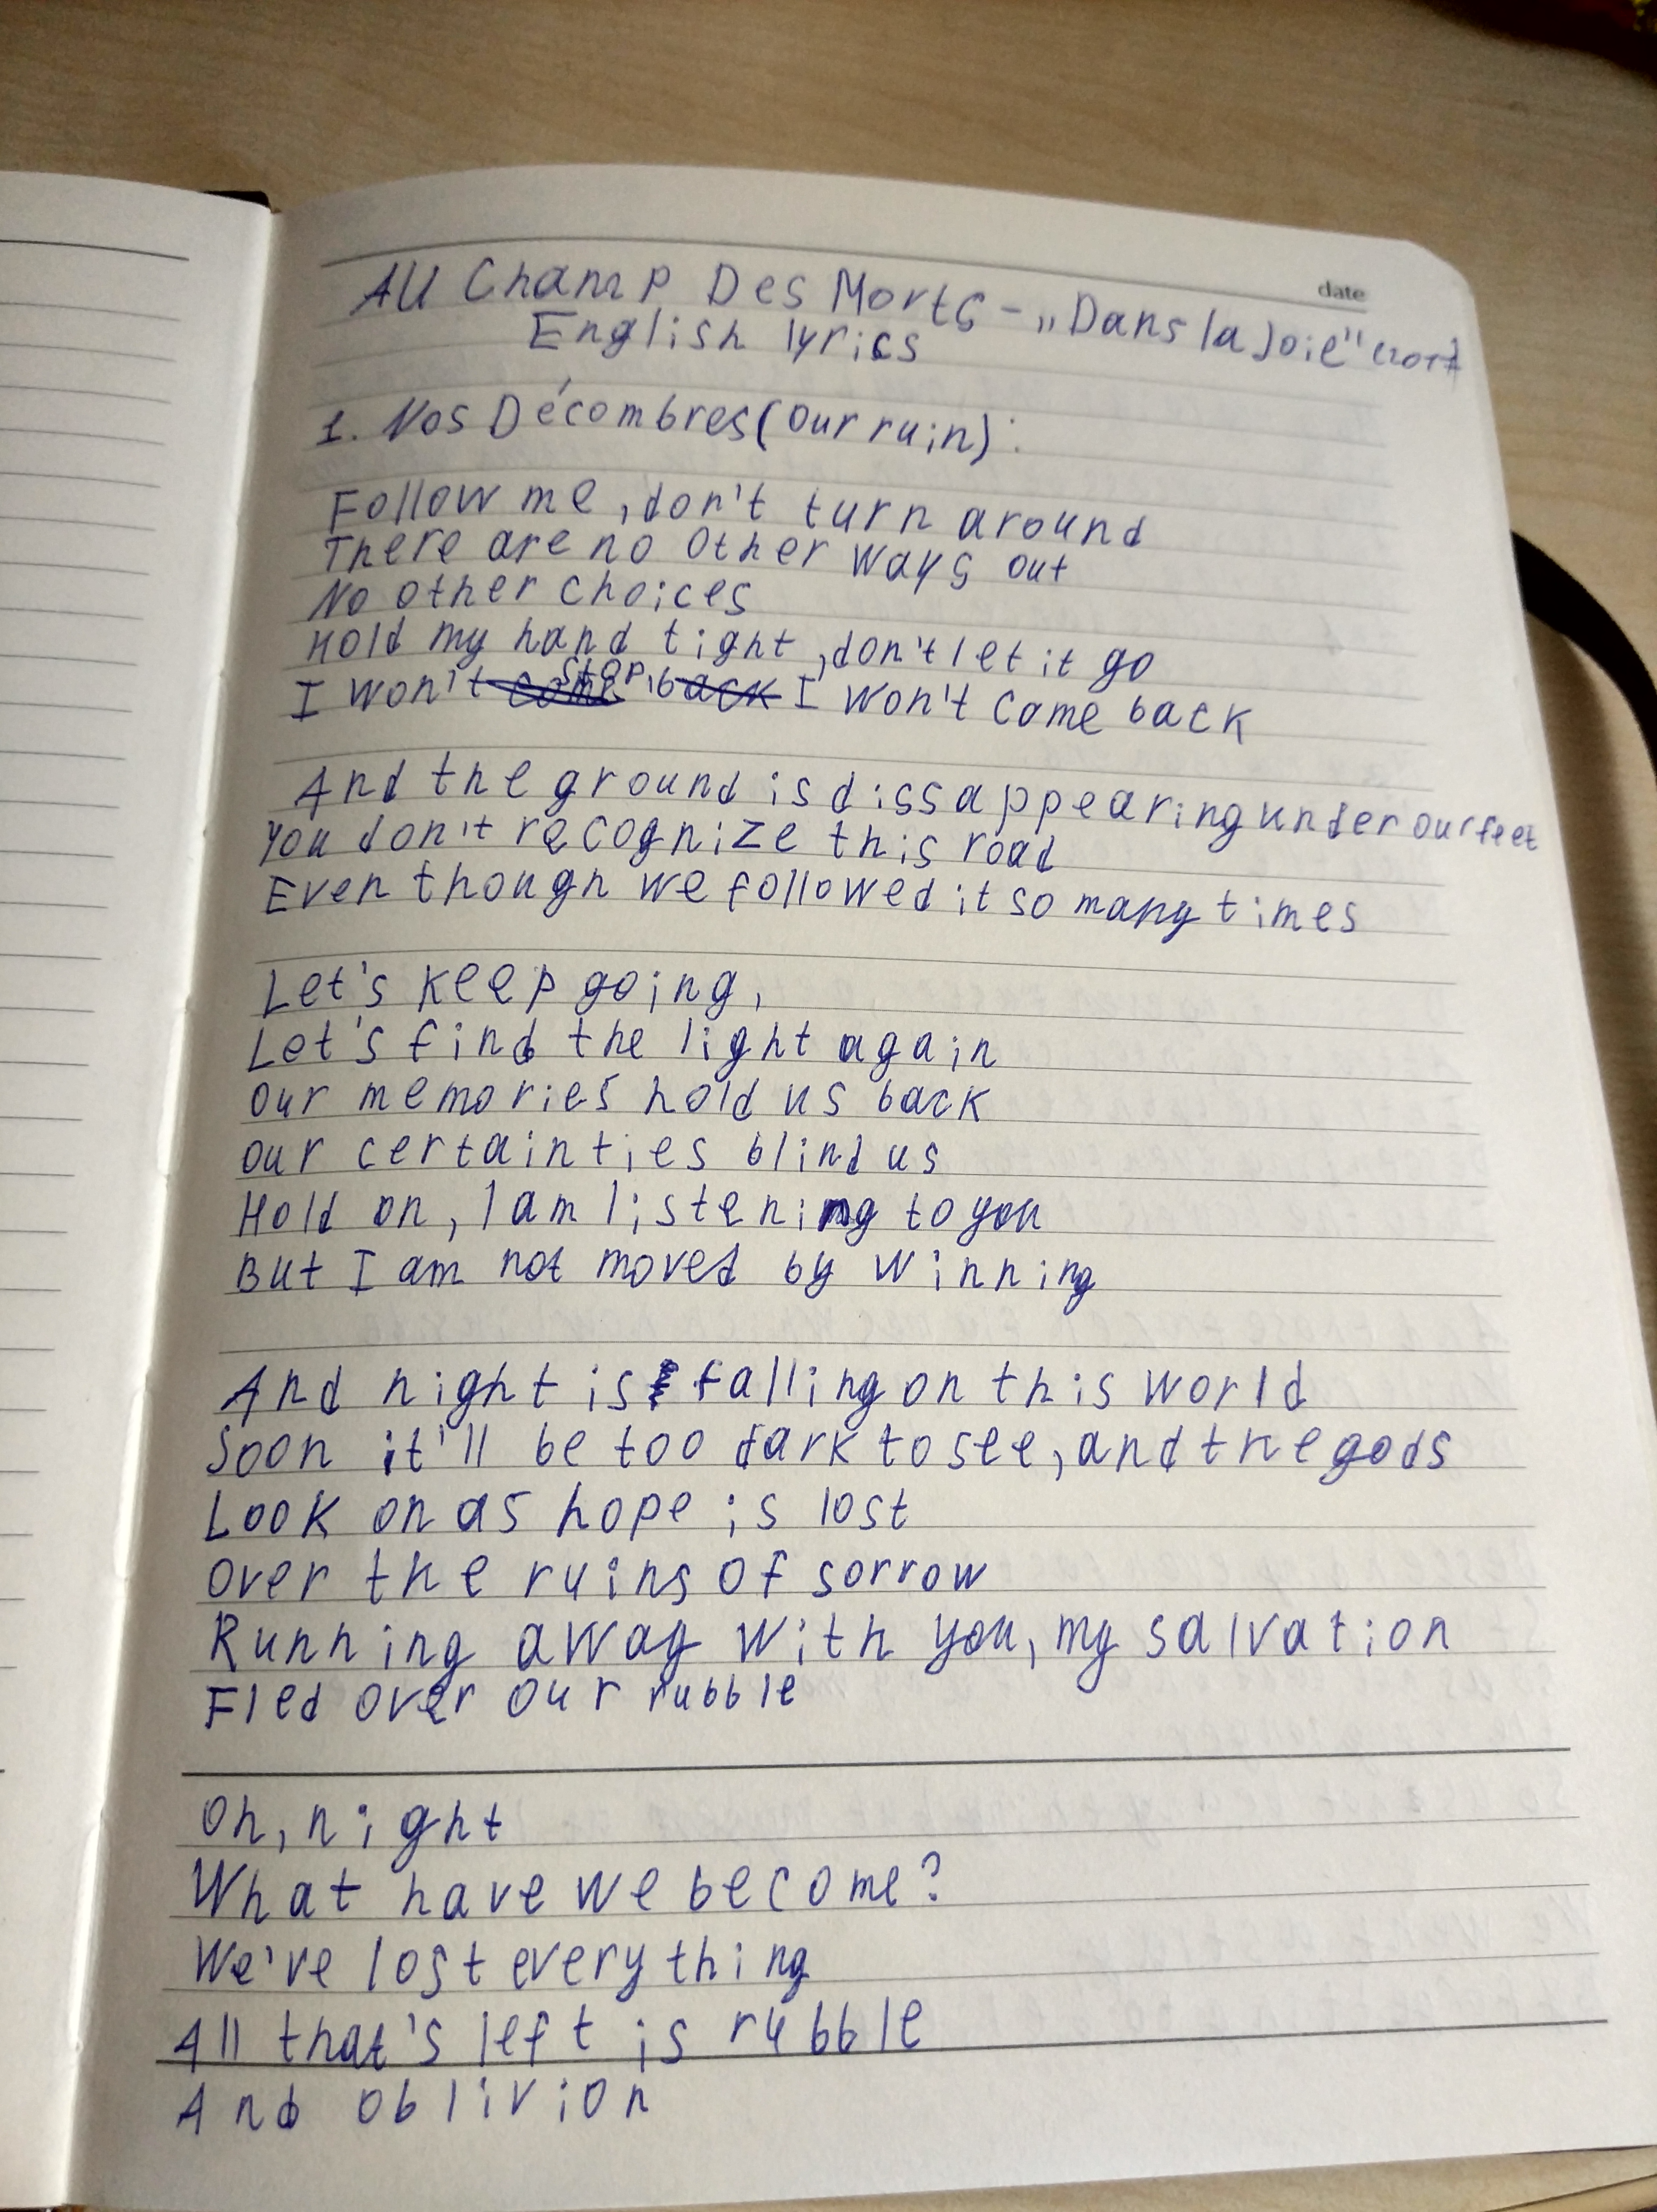 date
Au Champ Des Morts - „Dans la Joie" (2017
English lyrics
1. Nos Décombres (our ruin):
Follow me, don't turn around
There are no other ways out
No other choices
Hold my hand tight, don't let it go
I won't stop, I won't come back
And the ground is dissappearing under our feet
You don't recognize this road
Even though we followed it so many times
Let's keep going,
Let's find the light again
Our memories hold us back
Our certainties blind us
Hold on, I am listening to you
But I am not moved by winning
And night is falling on this world
Soon it'll be too dark to see, and the gods
Look on as hope is lost
Over the ruins of sorrow
Running away with you, my salvation
Fled over our rubble
Oh, night
What have we become?
We've lost everything
All that's left is rubble
And oblivion